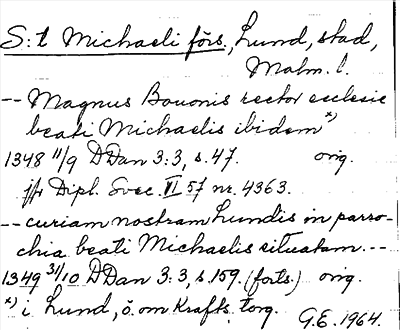 S:t Michaeli förs., Lund, stad,
Malm. l.
-- Magnus Bouonis rector ecclesie
beati Michaelis ibidem x)
1348 11/9 DDan 3:3, s. 47. orig.
jfr Dipl. Svec. VI 57 nr. 4363.
-- curiam nostram Lundis in parro-
chia beati Michaelis situatam. --
1349 31/10 DDan 3:3, s. 159. (forts.) orig.
x) i Lund, ö. om Krafts torg.
G.E. 1964.